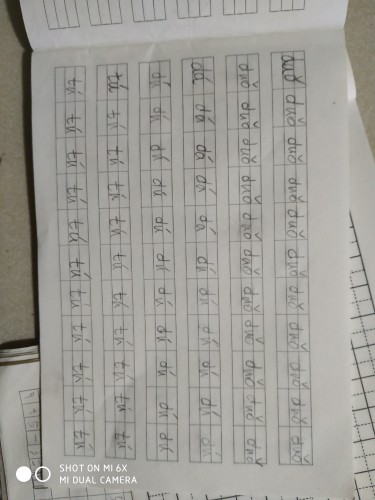 duǒ duǒ duǒ duǒ duǒ duǒ duǒ duǒ duǒ duǒ duǒ
duǒ duǒ duǒ duǒ duǒ duǒ duǒ duǒ duǒ duǒ duǒ
dú dá dá dá dá dú dú dú dú dú dú
dú dú dú dú dú dú dú dú dú dú dú
tú tú tú tú tú tú tú tú tú tú tú
tú tú tú tú tú tú tú tú tú tú tú
SHOT ON MI 6X
MI DUAL CAMERA